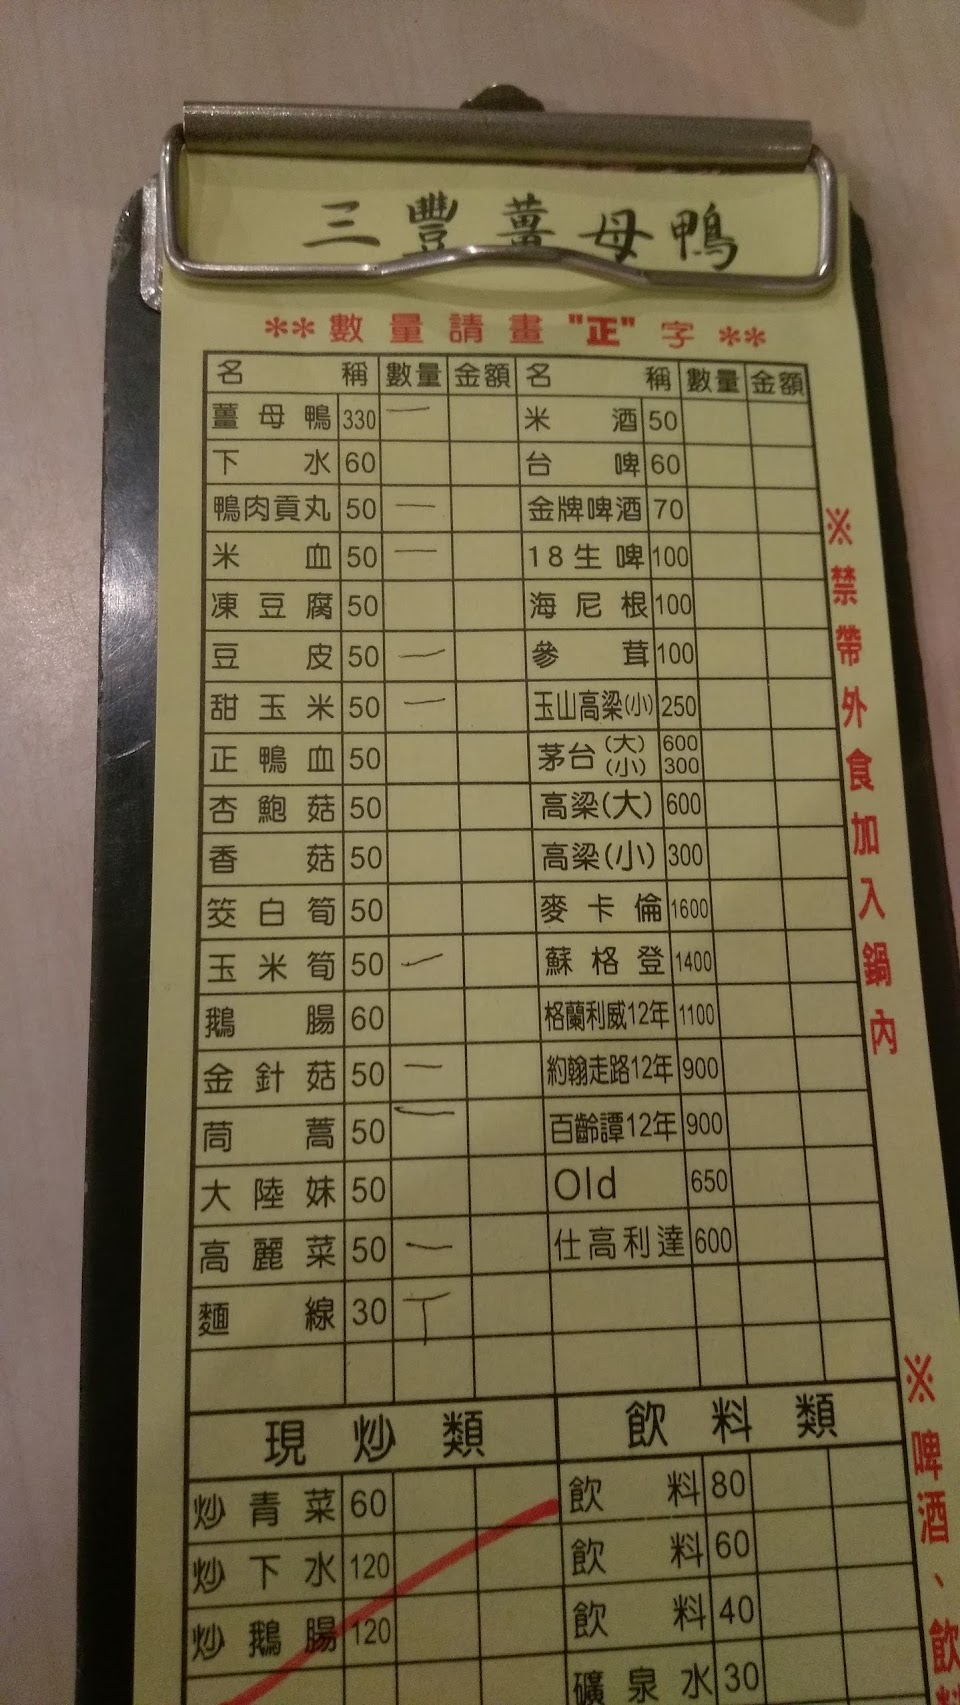 三豐薑母鴨
**數量請畫"正"字**
名稱 數量 金額 名稱 數量 金額
薑母鴨 330 一 米酒 50
下水 60 台啤 60
鴨肉貢丸 50 一 金牌啤酒 70
米血 50 一 18生啤 100
凍豆腐 50 海尼根 100
豆皮 50 一 參茸 100
甜玉米 50 一 玉山高梁(小) 250
正鴨血 50 茅台 (大) 600 (小) 300
杏鮑菇 50 高梁(大) 600
香菇 50 高梁(小) 300
筊白筍 50 麥卡倫 1600
玉米筍 50 一 蘇格登 1400
鵝腸 60 格蘭利威12年 1100
金針菇 50 一 約翰走路12年 900
茼蒿 50 一 百齡譚12年 900
大陸妹 50 Old 650
高麗菜 50 一 仕高利達 600
麵線 30 丅
現炒類 飲料類
炒青菜 60 飲料 80
炒下水 120 飲料 60
炒鵝腸 120 飲料 40
礦泉水 30
※禁帶外食加入鍋內
※啤酒、飲料